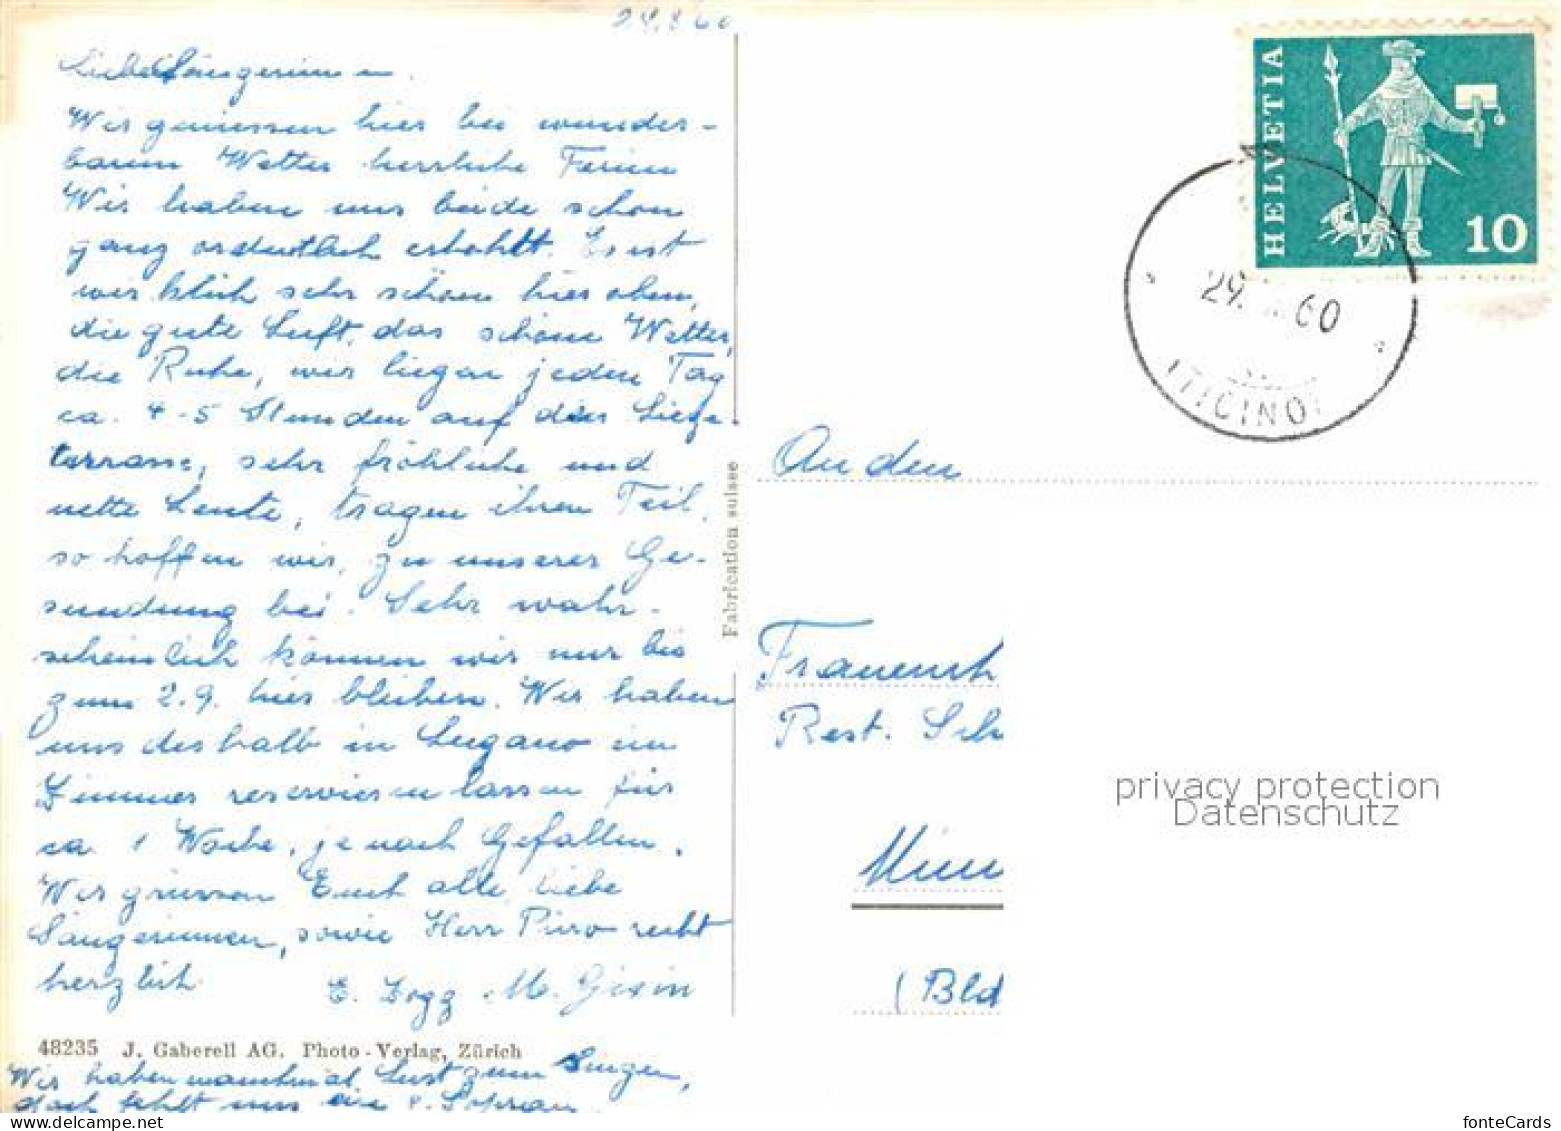 29.8.60
Liebe Sängerinnen.
Wir geniessen hier bei wunder-
barem Wetter herrliche Ferien
Wir haben uns beide schon
ganz ordentlich erhohlt. Es ist
wirklich sehr schön hier oben,
die gute Luft, das schöne Wetter,
die Ruhe, wir liegen jeden Tag
ca. 4-5 Stunden auf der Liege-
terrasse, sehr fröhliche und
nette Leute, tragen ihren Teil,
so hoffen wir, zu unserer Ge-
sundung bei. Sehr wahr-
scheinlich können wir nur bis
zum 2.9. hier bleiben. Wir haben
uns deshalb in Lugano ein
Zimmer reservieren lassen für
ca 1 Woche, je nach Gefallen.
Wir grüssen Euch alle liebe
Sängerinnen, sowie Herr Piro recht
herzlich E. Zogg M. Gisin
48235 J. Gaberell AG. Photo-Verlag, Zürich
Wir haben manchmal Lust zum Singen,
doch fehlt uns ein Sopran.
Fabrication suisse
HELVETIA
10
29. 60
(TICINO)
An den
Frauench
Rest. Sch
privacy protection
Datenschutz
(Bld
www.delcampe.net
fonteCards